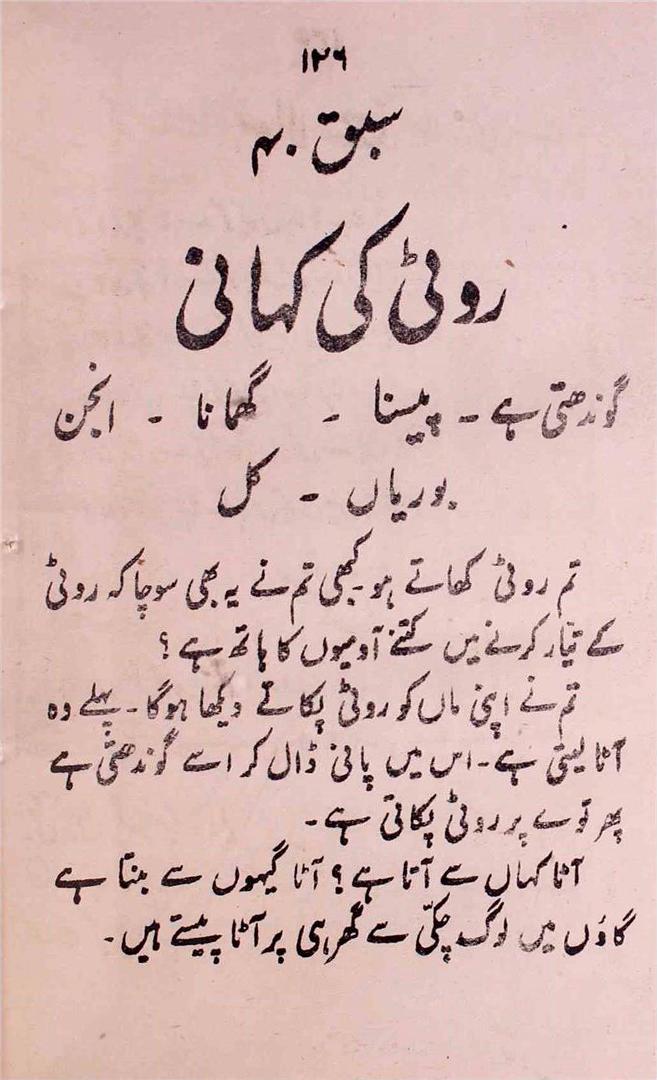 ۱۲۶
سبق ۴۰
روٹی کی کہانی
گوندھتی ہے ۔ پیسنا ۔ گھمانا ۔ انجن
بوریاں ۔ کل
تم روٹی کھاتے ہو۔ کبھی تم نے یہ بھی سوچا کہ روٹی
کے تیار کرنے میں کتنے آدمیوں کا ہاتھ ہے ؟
تم نے اپنی ماں کو روٹی پکاتے دیکھا ہوگا ۔ پہلے وہ
آٹا لیتی ہے ۔ اس میں پانی ڈال کر اسے گوندھتی ہے
پھر توے پر روٹی پکاتی ہے ۔
آٹا کہاں سے آتا ہے ؟ آٹا گیہوں سے بنتا ہے
گاؤں میں لوگ چکّی سے گھر ہی پر آٹا پیستے ہیں ۔